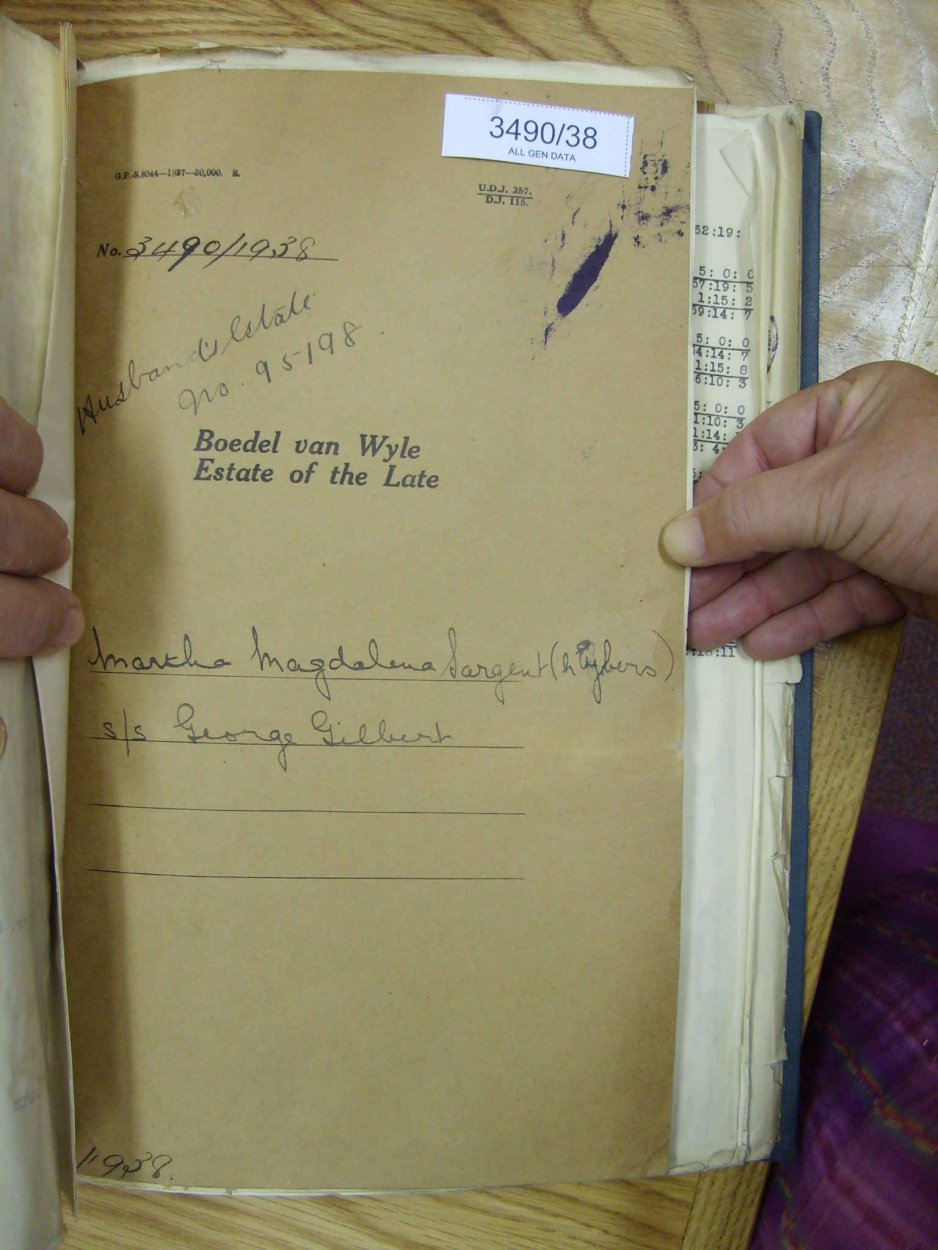 3490/38
ALL GEN DATA
G.P.-S.8044—1937—30,000. S.
U.D.J. 257.
D.J. 115.
No. 3490/1938
Husband's Estate
no. 95198
Boedel van Wyle
Estate of the Late
Martha Magdalena Sargent (n Nybers)
s/s George Gilbert
1938
52:19:
5: 0: 0
57:19: 5
1:15: 2
59:14: 7
5: 0: 0
54:14: 7
1:15: 8
6:10: 3
5: 0: 0
1:10: 3
1:14:
3: 4: